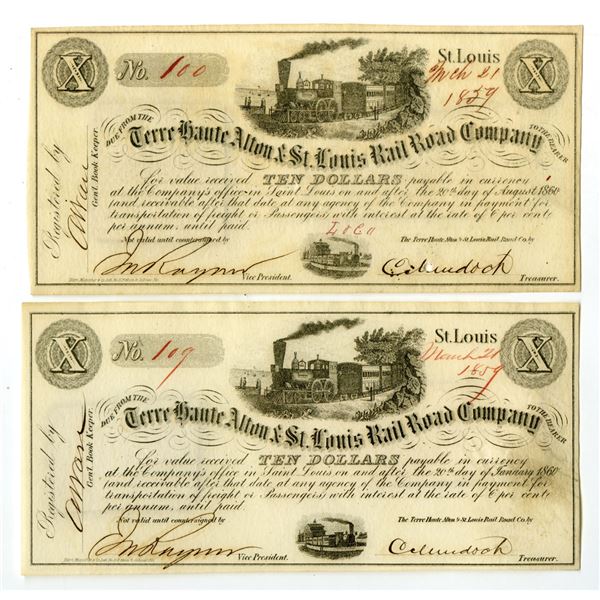 X
No. 100
St. Louis
Mch 21
1859
X
Registered by
Genl. Book Keeper.
DUE FROM THE
Terre Haute Alton & St. Louis Rail Road Company
TO THE BEARER
for value received TEN DOLLARS payable in currency
at the Company's office in Saint Louis on and after the 20th day of August 1860
(and receivable after that date at any agency of the Company in payment for
transportation of freight or Passengers) with interest at the rate of 6 per cent
per annum, until paid.
Not valid until countersigned by
The Terre Haute Alton & St. Louis Rail Road Co. by
Vice President.
C. Murdoch
Treasurer.
X
No. 109
St. Louis
March 21
1859
X
Registered by
Genl. Book Keeper.
DUE FROM THE
Terre Haute Alton & St. Louis Rail Road Company
TO THE BEARER
for value received TEN DOLLARS payable in currency
at the Company's office in Saint Louis on and after the 20th day of January 1860
(and receivable after that date at any agency of the Company in payment for
transportation of freight or Passengers) with interest at the rate of 6 per cent
per annum, until paid.
Not valid until countersigned by
The Terre Haute Alton & St. Louis Rail Road Co. by
Vice President.
C. Murdoch
Treasurer.